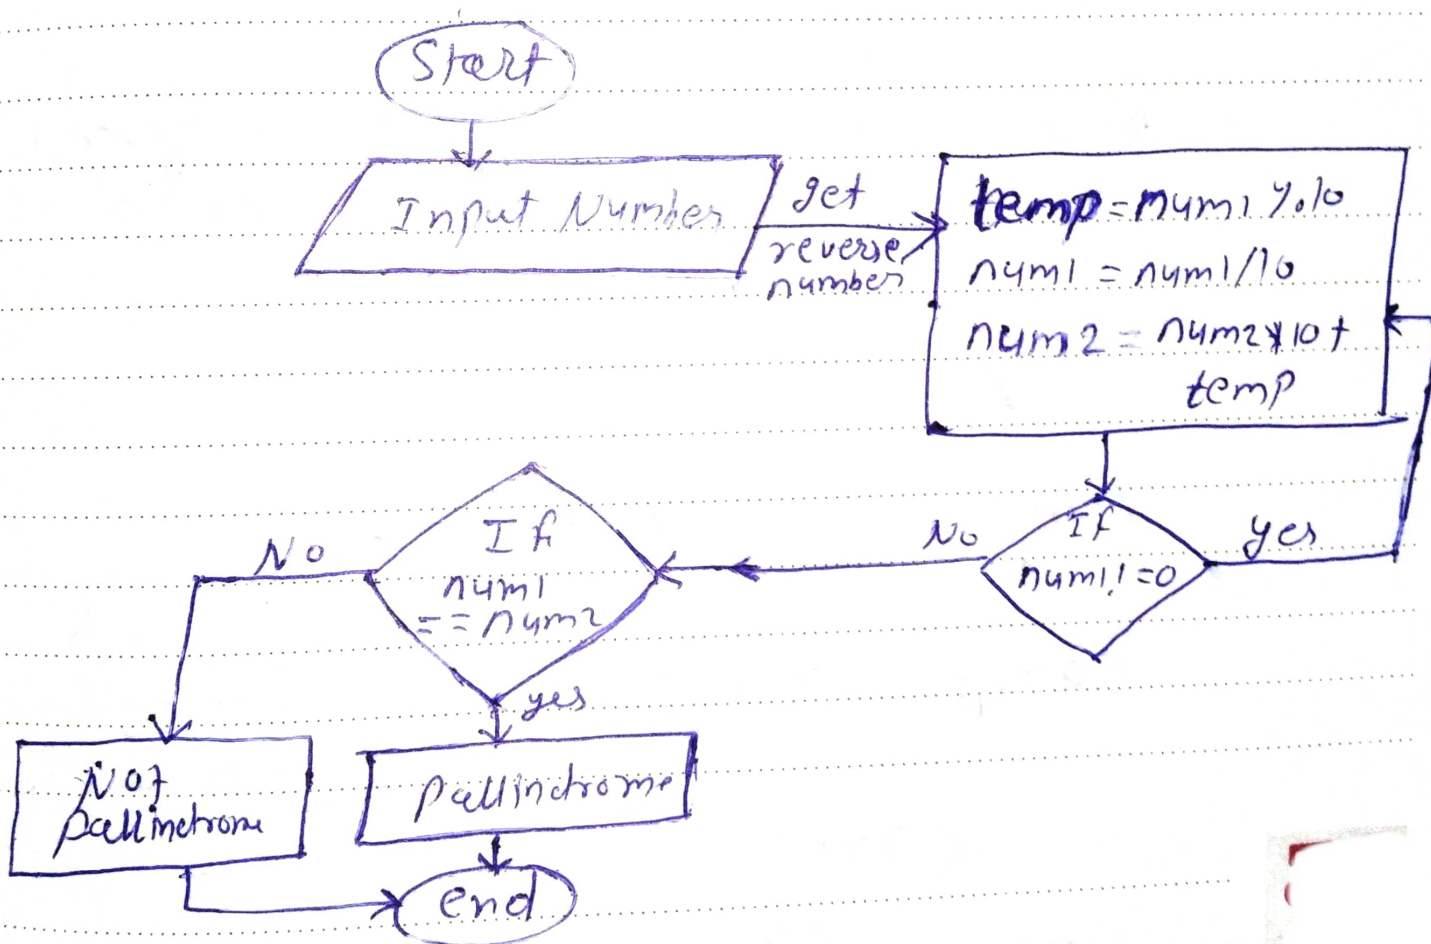 Start
Input Number
get
reverse
number
temp = num1 % 10
num1 = num1/10
num2 = num2*10+
temp
If
num1!=0
yes
No
If
num1
== num2
No
yes
Not
pallindrome
pallindrome
end